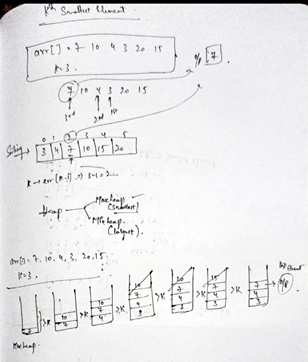 Kth Smallest Element
arr[] = 7 10 4 3 20 15
K=3.
o/p 7
7 10 4 3 20 15
3rd 2nd 1st
0 1 2 3 4 5
3 4 7 10 15 20
K → arr[K-1] => 3-1=2
Heap
Maxheap
(Smallest)
Minheap
(largest).
arr[] = 7, 10, 4, 3, 20, 15
K=3.
7
>K
10
7
>K
10
7
4
>K
10
7
4
3
>K
20
7
4
3
>K
15
7
4
3
>K
7
4
3
o/p
Maxheap